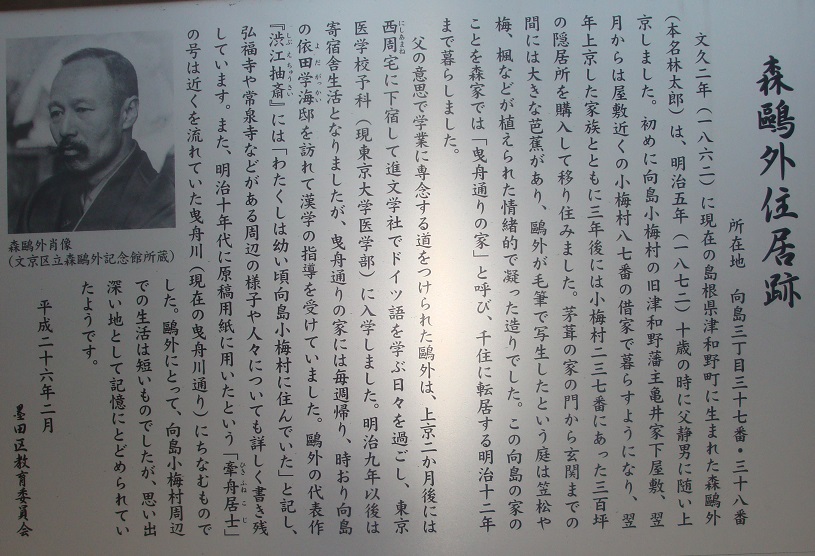 森鷗外住居跡
所在地　向島三丁目三十七番・三十八番
文久二年（一八六二）に現在の島根県津和野町に生まれた森鷗外
（本名林太郎）は、明治五年（一八七二）十歳の時に父静男に随い上
京しました。初めに向島小梅村の旧津和野藩主亀井家下屋敷、翌
月からは屋敷近くの小梅村八七番の借家で暮らすようになり、翌
年上京した家族とともに三年後には小梅村二三七番にあった三百坪
の隠居所を購入して移り住みました。茅葺の家の門から玄関までの
間には大きな芭蕉があり、鷗外が毛筆で写生したという庭は笠松や
梅、楓などが植えられた情緒的で凝った造りでした。この向島の家の
ことを森家では「曳舟通りの家」と呼び、千住に転居する明治十二年
まで暮らしました。
父の意思で学業に専念する道をつけられた鷗外は、上京二か月後には
西周宅に下宿して進文学社でドイツ語を学ぶ日々を過ごし、東京
にしあまね
医学校予科（現東京大学医学部）に入学しました。明治九年以後は
寄宿舎生活となりましたが、曳舟通りの家には毎週帰り、時おり向島
の依田学海邸を訪れて漢学の指導を受けていました。鷗外の代表作
よだがっかい
『渋江抽斎』には「わたくしは幼い頃向島小梅村に住んでいた」と記し、
しぶえちゅうさい
弘福寺や常泉寺などがある周辺の様子や人々についても詳しく書き残
しています。また、明治十年代に原稿用紙に用いたという「牽舟居士」
ひきふねこじ
の号は近くを流れていた曳舟川（現在の曳舟川通り）にちなむもので
した。鷗外にとって、向島小梅村周辺
での生活は短いものでしたが、思い出
深い地として記憶にとどめられてい
たようです。
平成二十六年二月
墨田区教育委員会
森鷗外肖像
（文京区立森鷗外記念館所蔵）